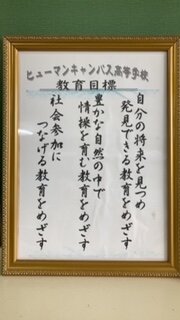 ヒューマンキャンパス高等学校
教育目標
自分の将来を見つめ
発見できる教育をめざす
豊かな自然の中で
情操を育む教育をめざす
社会参加に
つなげる教育をめざす